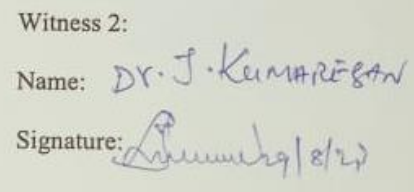 Witness 2:
Name: Dr. J. KUMARESAN
Signature: